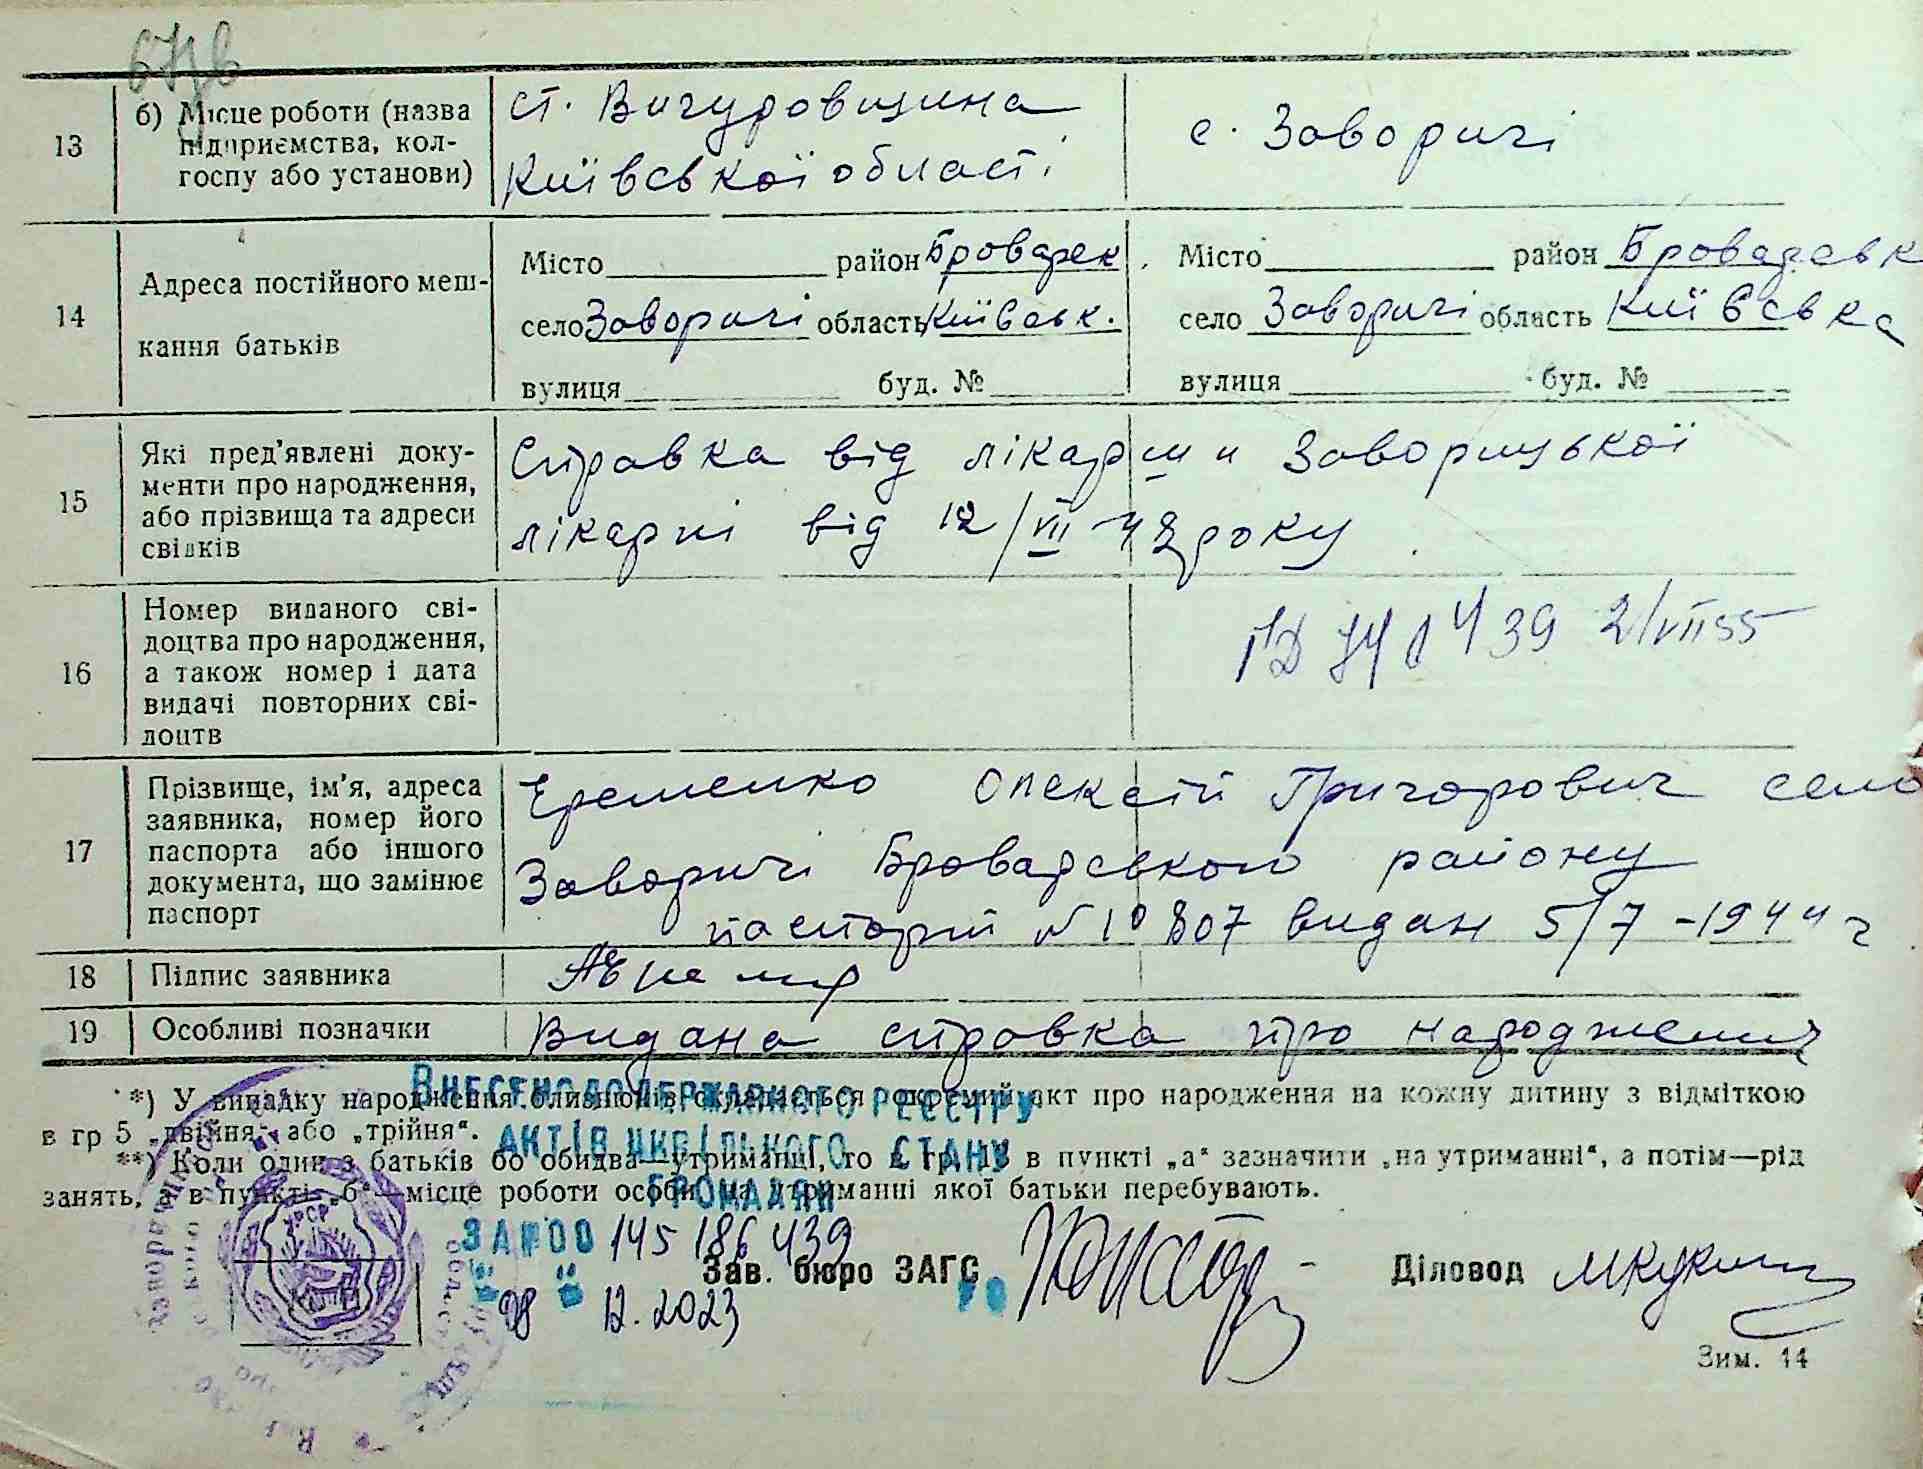 13 б) Місце роботи (назва підприємства, колгоспу або установи)
ст. Вигуровщина
Київської області
с. Заворичі
14 Адреса постійного мешкання батьків
Місто район Броварськ
село Заворичі область Київськ.
вулиця буд. №
Місто район Броварськ
село Заворичі область Київська
вулиця буд. №
15 Які пред'явлені документи про народження, або прізвища та адреси свідків
Справка від лікарши Заворицької
лікарні від 12/VII 42 року
16 Номер виданого свідоцтва про народження, а також номер і дата видачі повторних свідоцтв
439 2/VII 55
17 Прізвище, ім'я, адреса заявника, номер його паспорта або іншого документа, що замінює паспорт
Еременко Олексій Григорович село
Заворичі Броварського району
паспорт № 10807 видан 5/7-1944 г
18 Підпис заявника
19 Особливі позначки
Видана справка про народження
*) У випадку народження близнюків складається окремий акт про народження на кожну дитину з відміткою
в гр 5 „двійня" або „трійня".
**) Коли один з батьків бо обидва—утриманці, то в гр. 13 в пункті „а" зазначити „на утриманні", а потім—рід
занять, а в пункті „б"—місце роботи особи, на утриманні якої батьки перебувають.
ВНЕСЕНО ДО ДЕРЖАВНОГО РЕЄСТРУ
АКТІВ ЦИВІЛЬНОГО СТАНУ
ГРОМАДЯН
ЗА №00 145 186 439
08 12.2023
УРСР
Зав. бюро ЗАГС
Діловод
Зим. 14